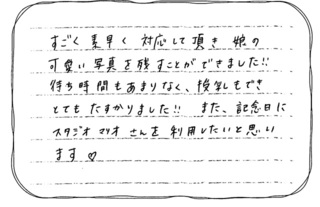 すごく素早く対応して頂き娘の
可愛い写真を残すことができました!!
待ち時間もあまりなく、換気もでき
とてもたすかりました!! また、記念日に
スタジオマリオさんを利用したいと思い
ます♡